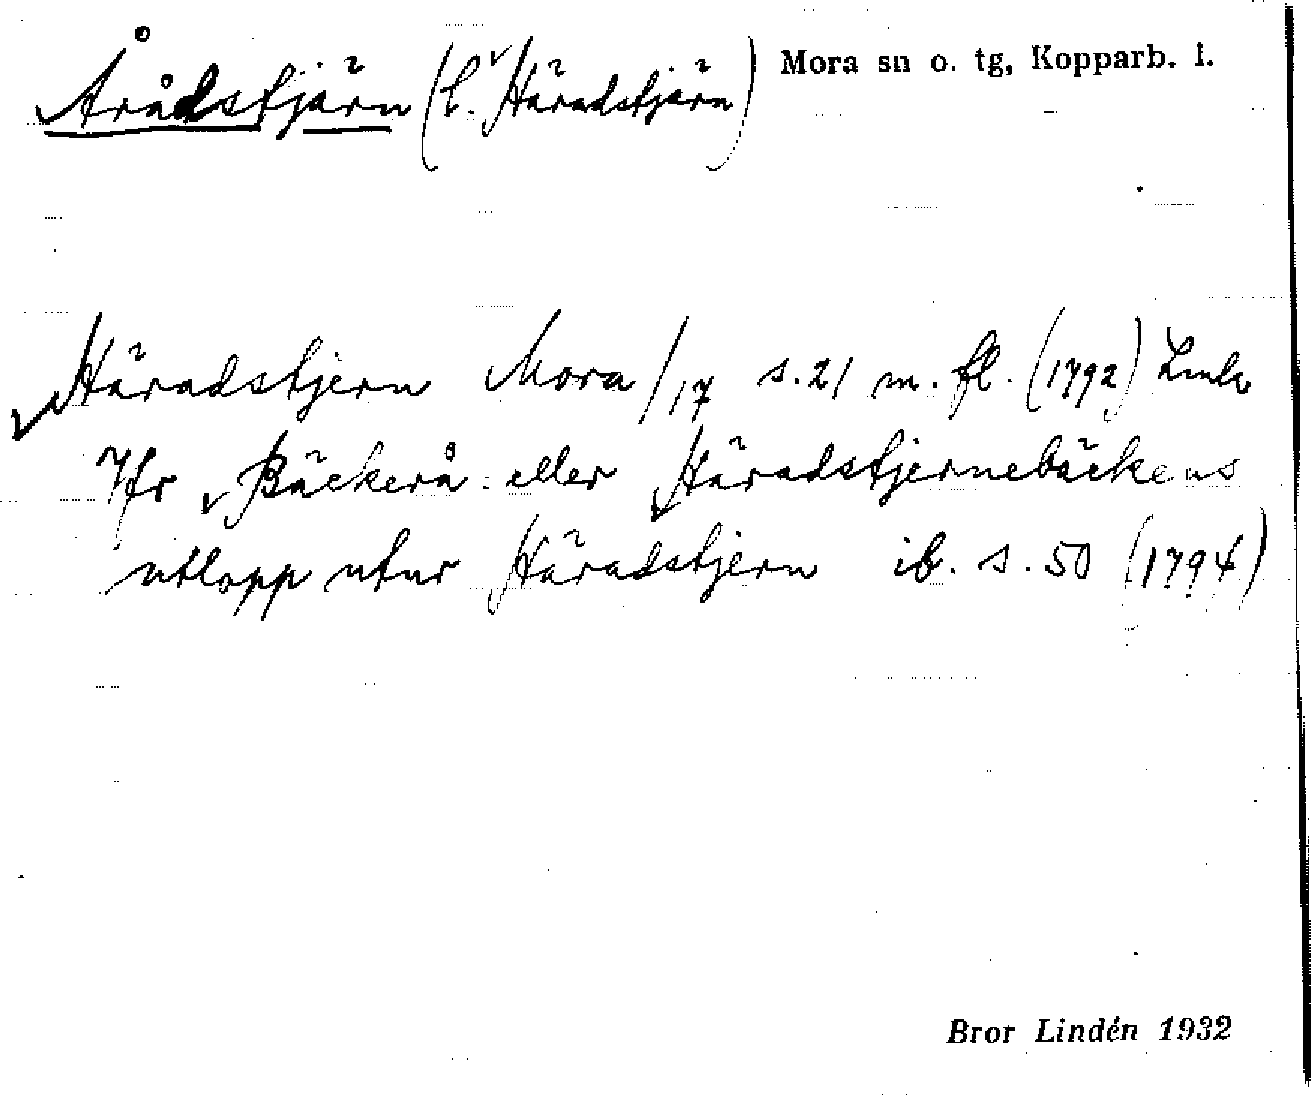 Årådstjärn (l. Häradstjärn) Mora sn o. tg, Kopparb. l.
Häradstjern Mora /17 s. 21 m. fl. (1792) Lmk
Jfr Bäckerå eller Häradstjernebäckens
utlopp utur Häradstjern ib. s. 50 (1794)
Bror Lindén 1932